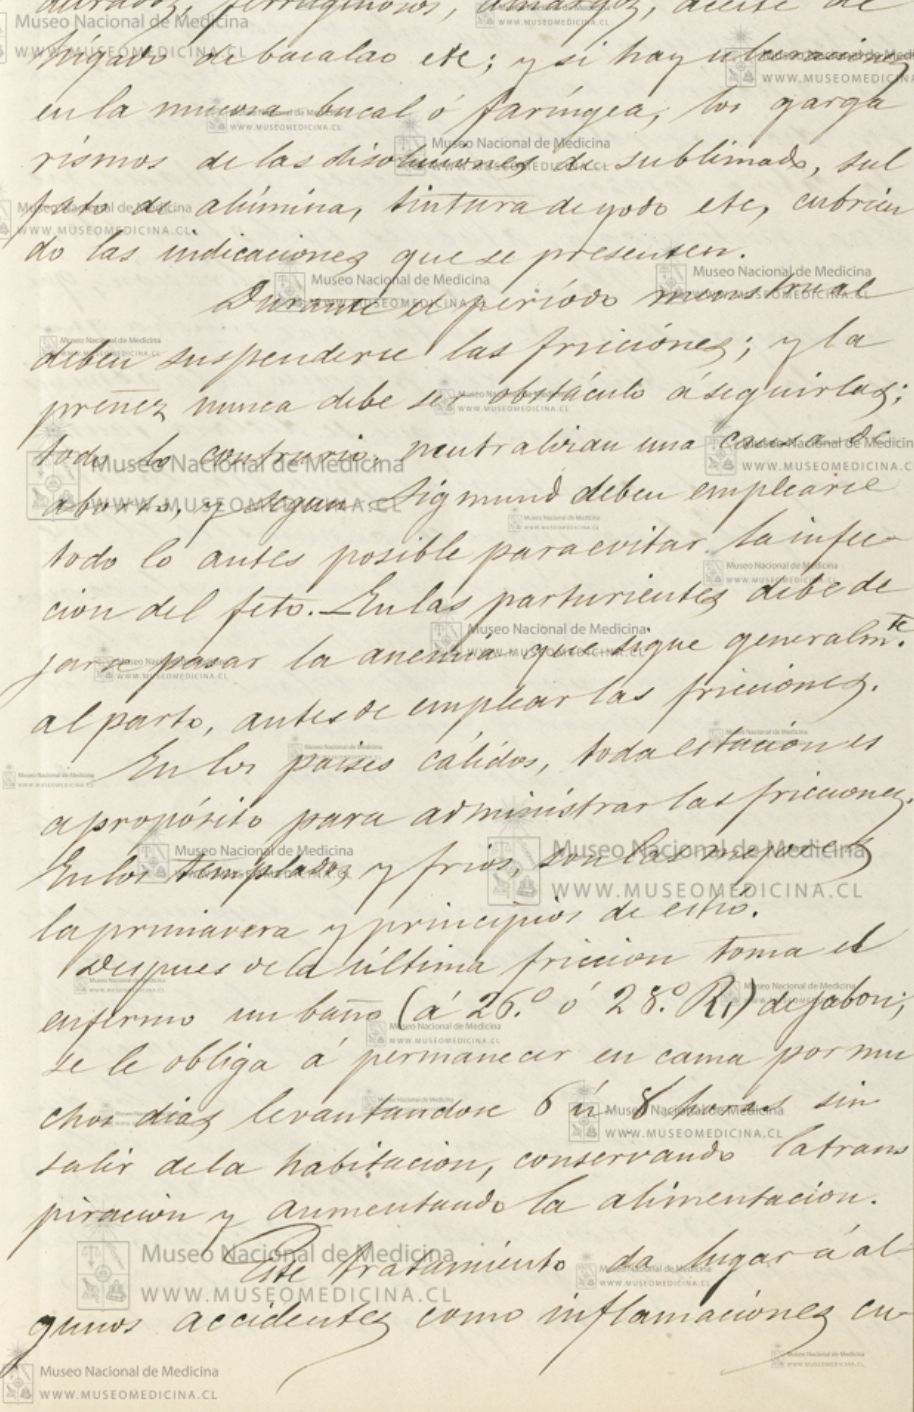 ferruginosos, amargos, aceite de
hígado de bacalao etc; y si hay ulceraciones
en la mucosa bucal ó faríngea, los garga
rismos de las disoluciones de sublimado, sul
fato de alúmina, tintura de yodo etc, cubrien
do las indicaciones que se presenten.
Durante el período menstrual
deben suspenderse las fricciones; y la
preñez nunca debe ser obstáculo á seguirlas;
todo lo contrario: neutralizan una causa de
aborto, y segun Sigmund deben emplearse
todo lo antes posible para evitar la infec-
cion del feto. — En las parturientes debe de
jarse pasar la anemia que sigue generalmte.
al parto, antes de emplear las fricciones.
En los paises cálidos, toda estacion es
apropósito para administrar las fricciones.
En los templados y frios, son las mejores
la primavera y principios de estío.
Despues de la última friccion toma el
enfermo un baño (á 26.º ó 28.º R.) de jabon;
se le obliga á permanecer en cama por mu
chos dias levantandose 6 ú 8 horas sin
salir de la habitacion, conservando la trans
piracion y aumentando la alimentacion.
Este tratamiento da lugar á al
gunos accidentes como inflamaciones cu-
Museo Nacional de Medicina
WWW.MUSEOMEDICINA.CL